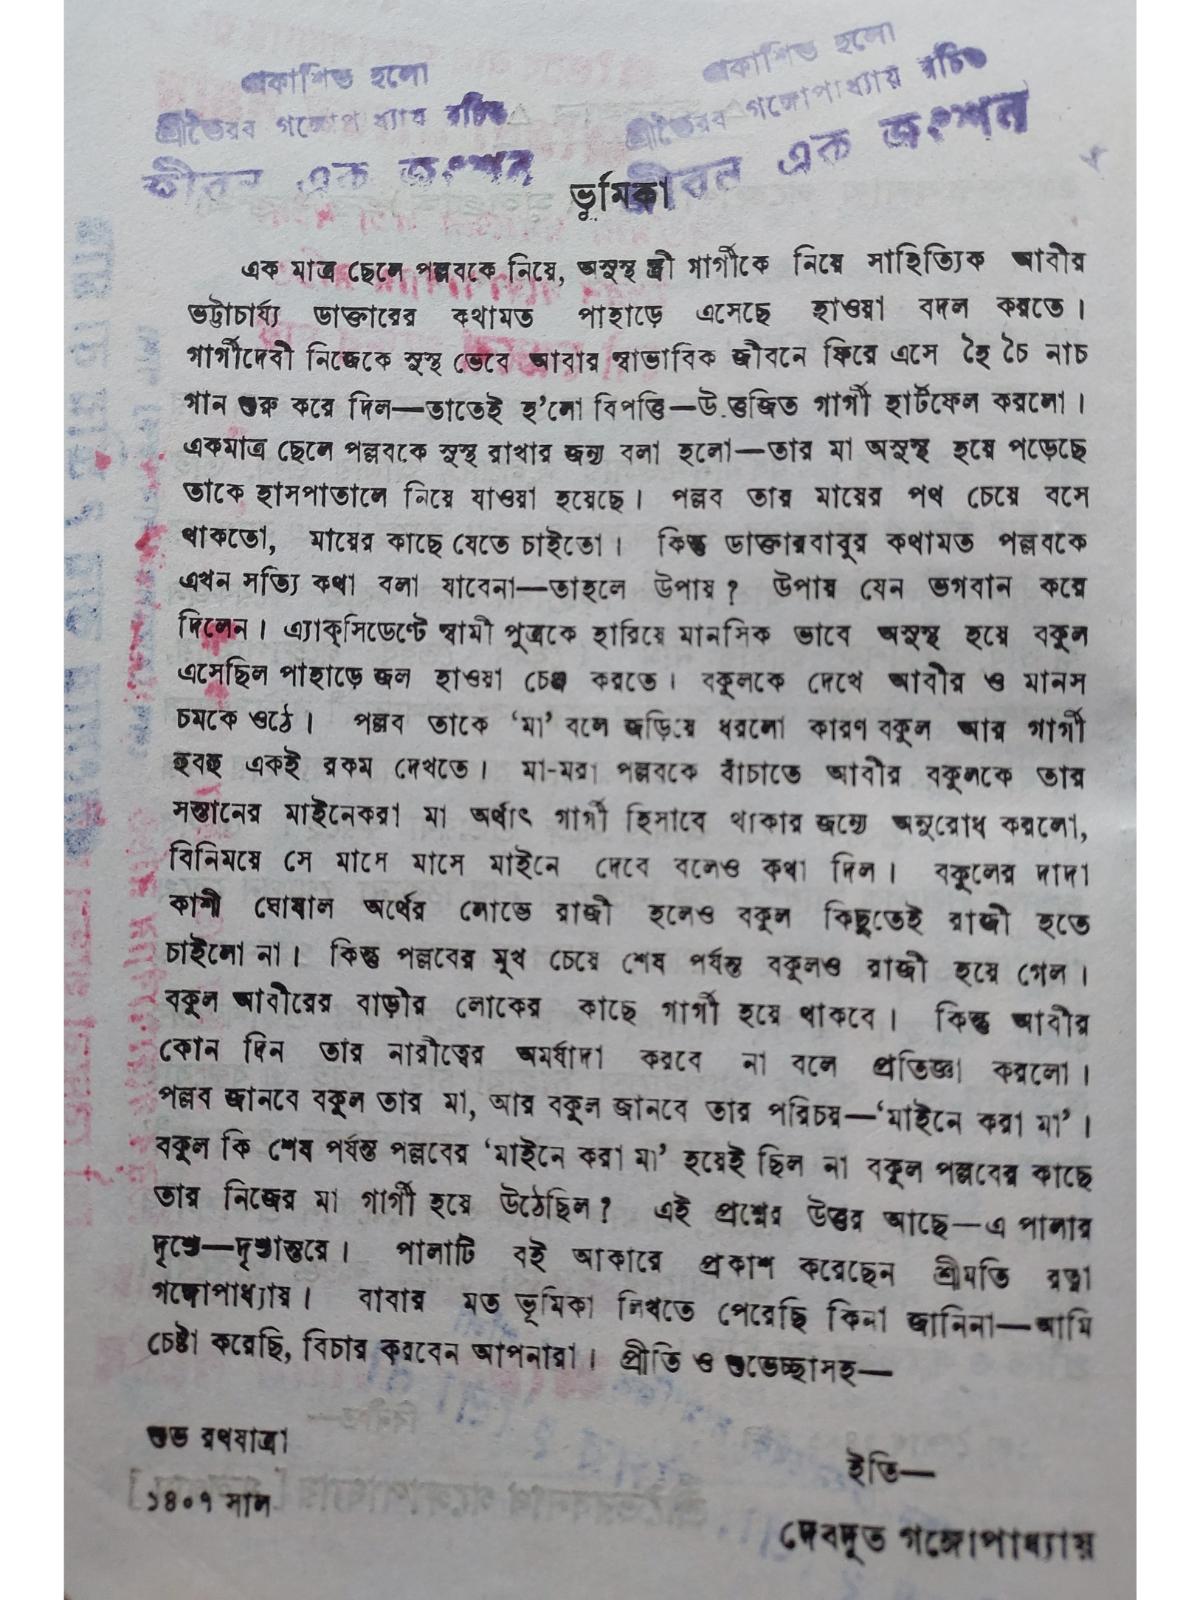 প্রকাশিত হলো
শ্রীভৈরব গঙ্গোপাধ্যায় রচিত
জীবন এক জংশন
প্রকাশিত হলো
শ্রীভৈরব গঙ্গোপাধ্যায় রচিত
জীবন এক জংশন
ভূমিকা
এক মাত্র ছেলে পল্লবকে নিয়ে, অসুস্থ স্ত্রী গার্গীকে নিয়ে সাহিত্যিক আবীর
ভট্টাচার্য্য ডাক্তারের কথামত পাহাড়ে এসেছে হাওয়া বদল করতে।
গার্গীদেবী নিজেকে সুস্থ ভেবে আবার স্বাভাবিক জীবনে ফিরে এসে হৈ চৈ নাচ
গান শুরু করে দিল—তাতেই হ'লো বিপত্তি—উত্তজিত গার্গী হার্টফেল করলো।
একমাত্র ছেলে পল্লবকে সুস্থ রাখার জন্য বলা হলো—তার মা অসুস্থ হয়ে পড়েছে
তাকে হাসপাতালে নিয়ে যাওয়া হয়েছে। পল্লব তার মায়ের পথ চেয়ে বসে
থাকতো, মায়ের কাছে যেতে চাইতো। কিন্তু ডাক্তারবাবুর কথামত পল্লবকে
এখন সত্যি কথা বলা যাবেনা—তাহলে উপায়? উপায় যেন ভগবান করে
দিলেন। এ্যাক্সিডেণ্টে স্বামী পুত্রকে হারিয়ে মানসিক ভাবে অসুস্থ হয়ে বকুল
এসেছিল পাহাড়ে জল হাওয়া চেঞ্জ করতে। বকুলকে দেখে আবীর ও মানস
চমকে ওঠে। পল্লব তাকে ‘মা’ বলে জড়িয়ে ধরলো কারণ বকুল আর গার্গী
হুবহু একই রকম দেখতে। মা-মরা পল্লবকে বাঁচাতে আবীর বকুলকে তার
সন্তানের মাইনেকরা মা অর্থাৎ গার্গী হিসাবে থাকার জন্যে অনুরোধ করলো,
বিনিময়ে সে মাসে মাসে মাইনে দেবে বলেও কথা দিল। বকুলের দাদা
কাশী ঘোষাল অর্থের লোভে রাজী হলেও বকুল কিছুতেই রাজী হতে
চাইলো না। কিন্তু পল্লবের মুখ চেয়ে শেষ পর্যন্ত বকুলও রাজী হয়ে গেল।
বকুল আবীরের বাড়ীর লোকের কাছে গার্গী হয়ে থাকবে। কিন্তু আবীর
কোন দিন তার নারীত্বের অমর্যাদা করবে না বলে প্রতিজ্ঞা করলো।
পল্লব জানবে বকুল তার মা, আর বকুল জানবে তার পরিচয়—‘মাইনে করা মা’।
বকুল কি শেষ পর্যন্ত পল্লবের ‘মাইনে করা মা’ হয়েই ছিল না বকুল পল্লবের কাছে
তার নিজের মা গার্গী হয়ে উঠেছিল? এই প্রশ্নের উত্তর আছে—এ পালার
দৃশ্যে—দৃশ্যান্তরে। পালাটি বই আকারে প্রকাশ করেছেন শ্রীমতি রত্না
গঙ্গোপাধ্যায়। বাবার মত ভূমিকা লিখতে পেরেছি কিনা জানিনা—আমি
চেষ্টা করেছি, বিচার করবেন আপনারা। প্রীতি ও শুভেচ্ছাসহ—
শুভ রথযাত্রা
১৪০৭ সাল
ইতি—
দেবদূত গঙ্গোপাধ্যায়